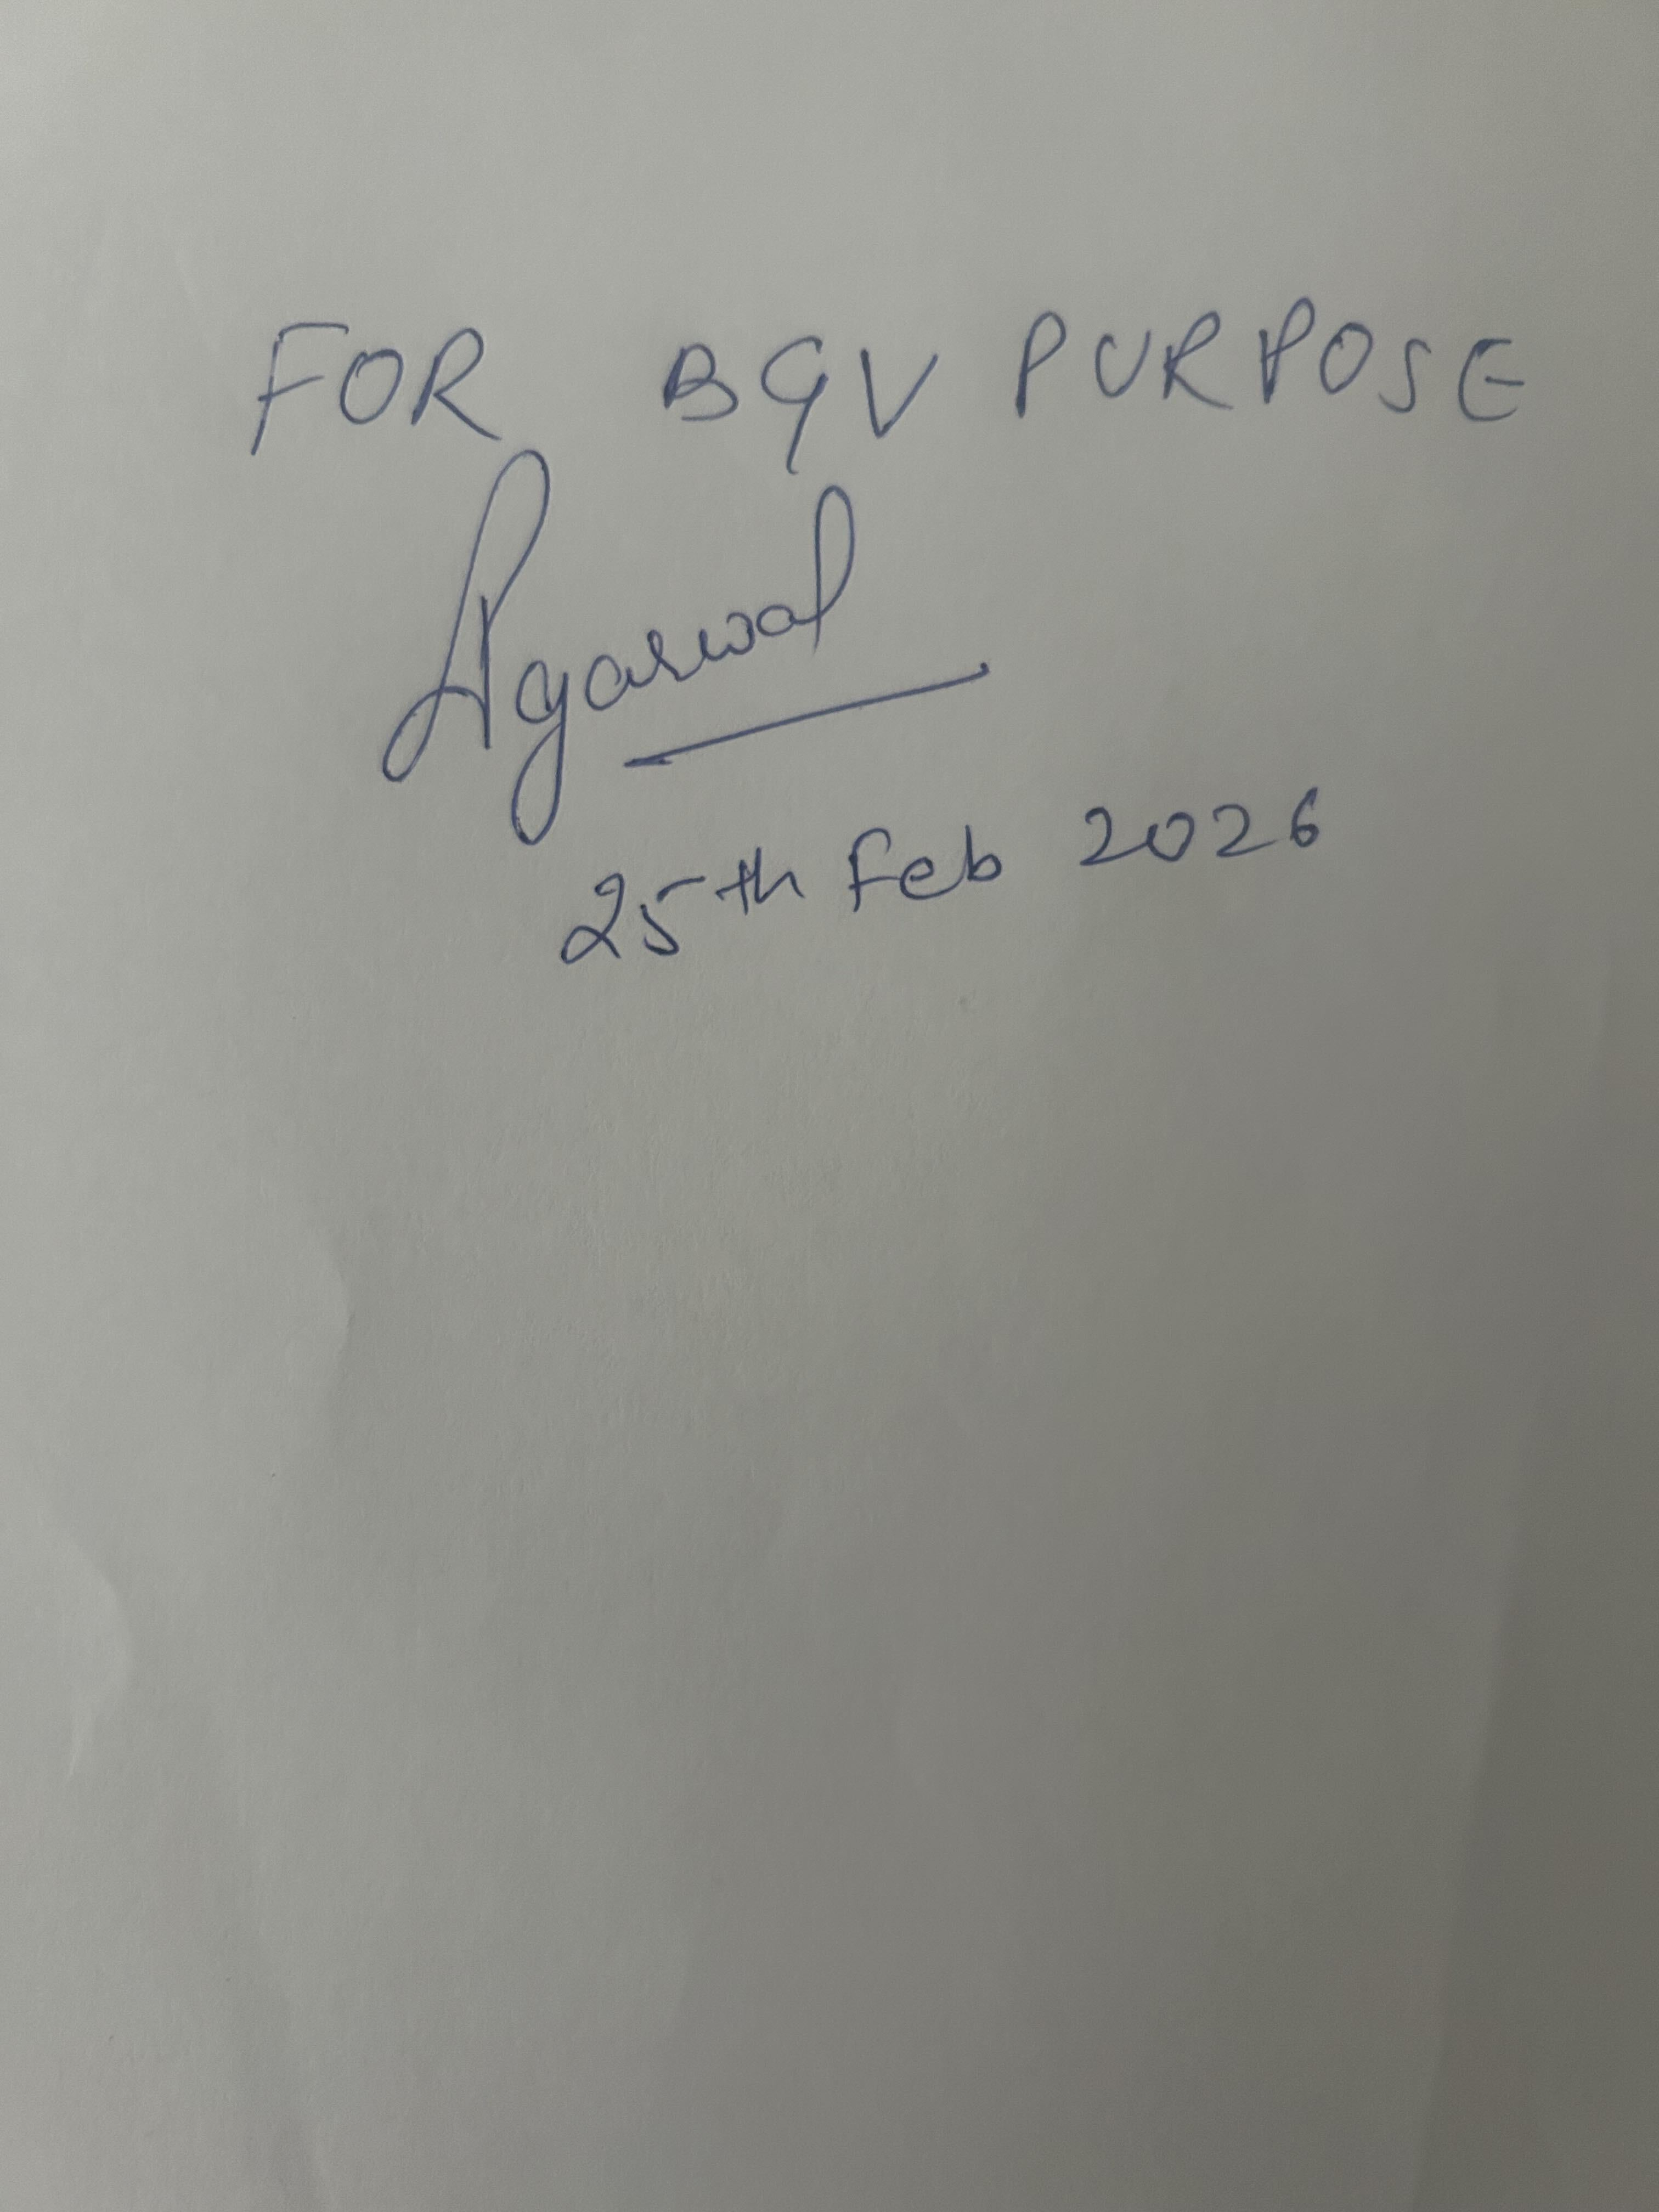 FOR BGV PURPOSE
Agarwal
25th Feb 2026